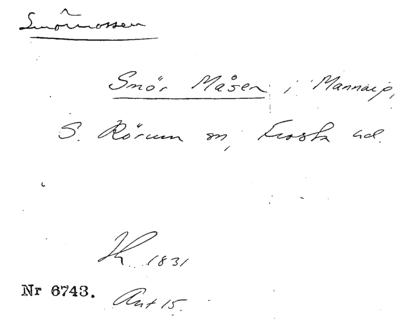 Smörmossen
Smör Måsen i Mannarp,
S. Rörum sn, Frosta hd.
1831
Nr 6743. Akt 15.